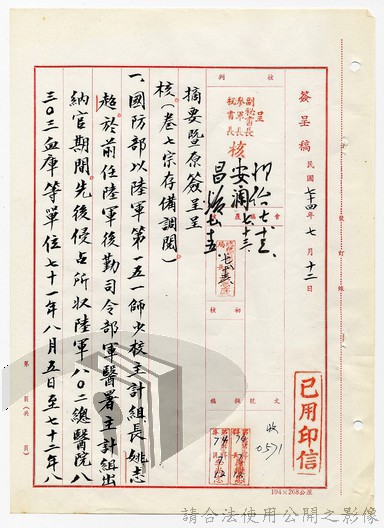 簽呈稿 民國七十四年七月十二日
判 核
呈
副秘書長
參軍長
秘書長
核
摘要暨原簽呈呈
核(卷七宗存備調閱)
一、國防部以陸軍第一五一師少校主計組長姚志
超於前任陸軍後勤司令部軍醫署主計組出
納官期間,先後侵占所收陸軍八〇二總醫院八
三〇三血庫等單位七十一年八月五日至七十二年八
已用印信
文號
收0571
擬稿
初核
裝訂線
第 頁(共 頁)
194×268公厘
請合法使用公開之影像